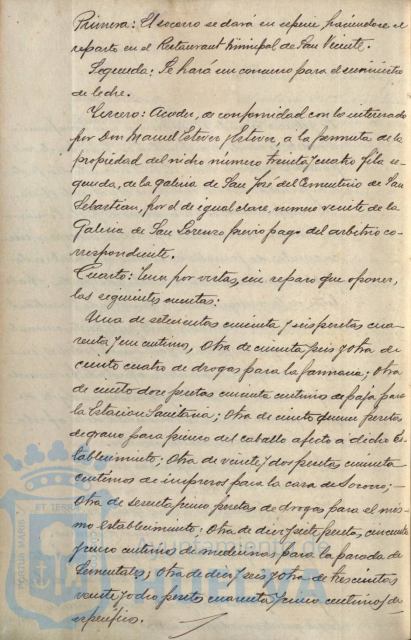 Primera: El socorro se dará en especie haciendose el
reparto en el Restaurant Municipal de San Vicente.
Segunda: Se hará un concurso para el suministro
de leche.
Tercero: Acceder, de conformidad con lo interesado
por Don Manuel Esteve y Esteve, a la permuta de la
propiedad del nicho número treinta y cuatro, fila se-
gunda, de la galeria de San José del Cementerio de San
Sebastian, por el de igual clase, número veinte de la
Galeria de San Lorenzo previo pago del arbitrio co-
rrespondiente.
Cuarto: Tener por vistas, sin reparo que oponer,
las siguientes cuentas:
Una de setecientas cincuenta y seis pesetas cua-
renta y un centimos, Otra de cincuenta y seis y otra de
ciento cuatro de drogas para la farmacia; Otra
de ciento doce pesetas cincuenta centimos de paja para
la Estacion Sanitaria; Otra de ciento quince pesetas
de grano para pienso del caballo afecto a dicho Es-
tablecimiento; Otra de veinte y dos pesetas cincuenta
centimos de impresos para la casa de Socorro;
Otra de sesenta y cinco pesetas de drogas para el mis-
mo establecimiento; Otra de diez y siete pesetas, cincuenta
y cinco centimos de medicinas para la parada de
Sementales; Otra de diez y seis y otra de trescientas
veinte y ocho pesetas cuarenta y cinco centimos de
especificos.
ET TERRIS
PORTUM MARIS